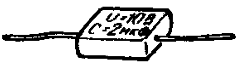 U=10В
C=2мкФ